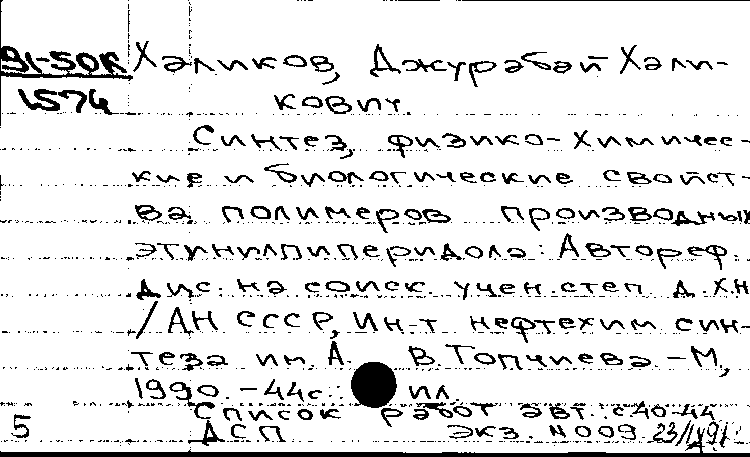 91-50R Халиков, Джурабай Хали-
1574 кович.
Синтез, физико-химичес-
кие и биологические свойст-
ва полимеров производных
этинилпиперидола: Автореф.
дис. на соиск. учен. степ. д.х.н
/АН СССР, Ин-т нефтехим син-
теза им. А. В. Топчиева. - М.,
1990. - 44с.: ил.
Список работ авт.: с 40-44
5 ДСП экз. N 009 23/IV91